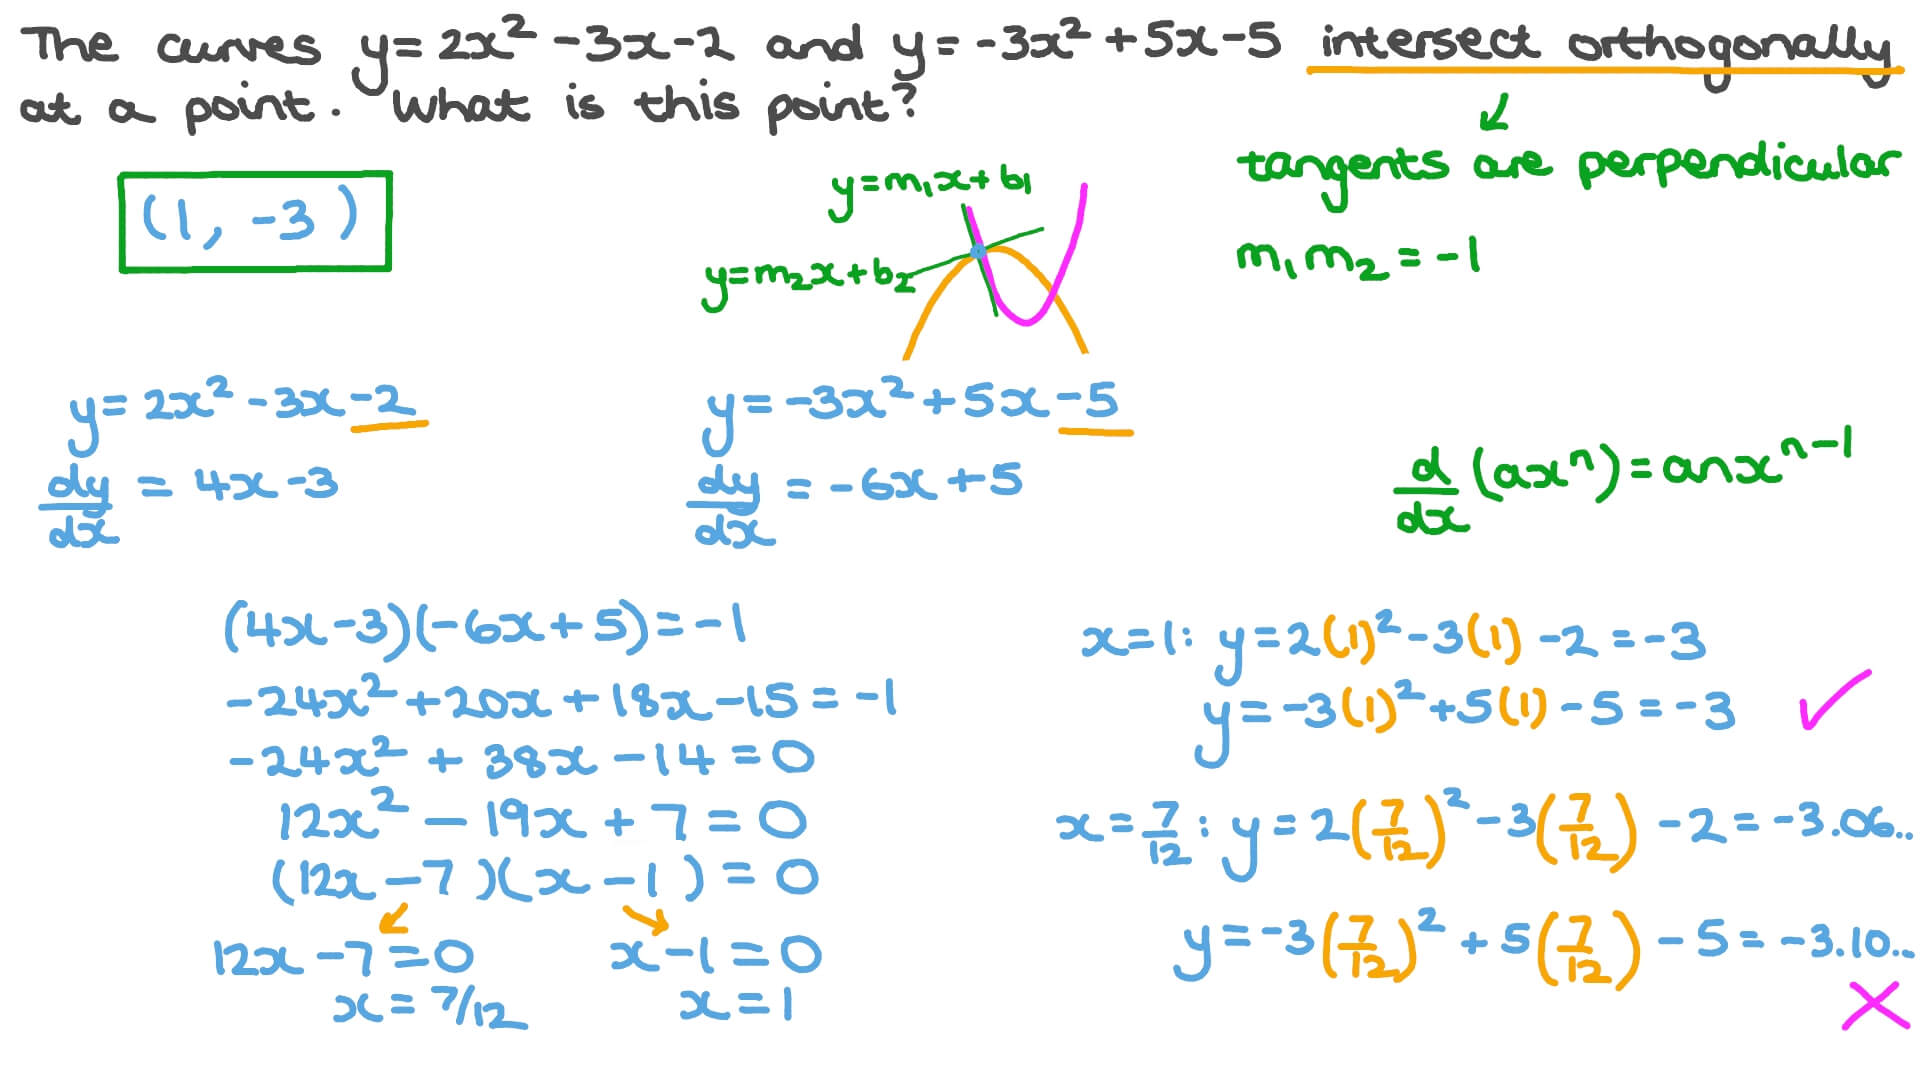 The curves y = 2x² - 3x - 2 and y = -3x² + 5x - 5 intersect orthogonally
at a point. What is this point?
tangents are perpendicular
m₁m₂ = -1
(1, -3)
y = m₁x + b₁
y = m₂x + b₂
y = 2x² - 3x - 2
dy/dx = 4x - 3
y = -3x² + 5x - 5
dy/dx = -6x + 5
d/dx (axⁿ) = anxⁿ⁻¹
(4x - 3)(-6x + 5) = -1
-24x² + 20x + 18x - 15 = -1
-24x² + 38x - 14 = 0
12x² - 19x + 7 = 0
(12x - 7)(x - 1) = 0
12x - 7 = 0
x = 7/12
x - 1 = 0
x = 1
x = 1: y = 2(1)² - 3(1) - 2 = -3
y = -3(1)² + 5(1) - 5 = -3
x = 7/12: y = 2(7/12)² - 3(7/12) - 2 = -3.06..
y = -3(7/12)² + 5(7/12) - 5 = -3.10..